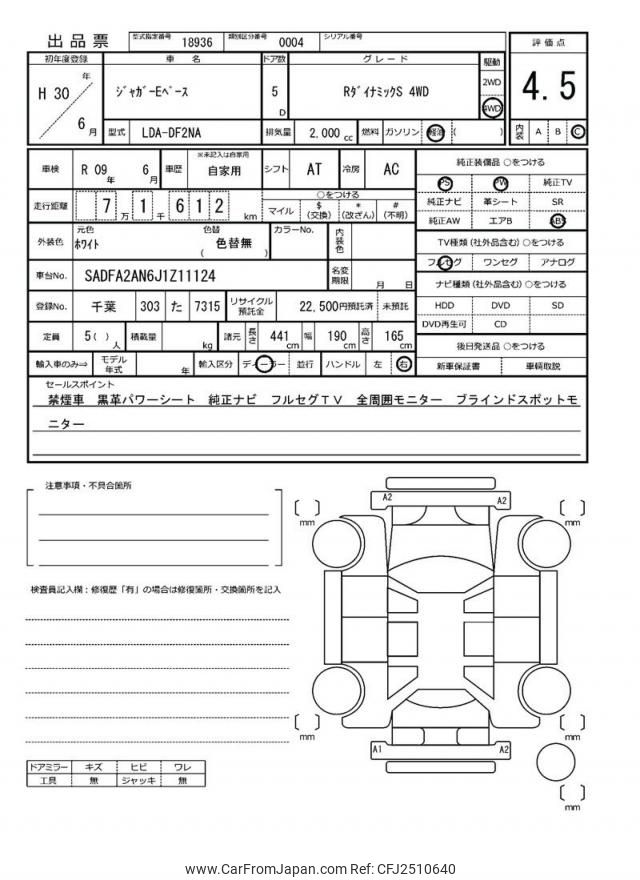 出品票 型式指定番号 18936 類別区分番号 0004 シリアル番号
初年度登録 車 名 ドア数 グレード 駆動 評価点
H 30 年 6 月 ジャガーEペース 5 D RダイナミックS 4WD 2WD 4WD 4.5
型式 LDA-DF2NA 排気量 2,000 cc 燃料 ガソリン 軽油 ( ) 内装 A B C
車検 R 09 年 6 月 車歴 ※未記入は自家用 自家用 シフト AT 冷房 AC
走行距離 7 万 1 千 6 1 2 km ○をつける マイル $ (交換) * (改ざん) # (不明)
外装色 元色 ホワイト 色替 色替無 ( ) カラーNo. 内装色
車台No. SADFA2AN6J1Z11124 名変期限 月 日
登録No. 千葉 303 た 7315 リサイクル預託金 22,500円預託済 未預託
定員 5( ) 人 積載量 kg 諸元 長さ 441 cm 幅 190 cm 高さ 165 cm
輸入車のみ⇒ モデル年式 年 輸入区分 ディーラー 並行 ハンドル 左 右
純正装備品 ○をつける
PS PW 純正TV
純正ナビ 革シート SR
純正AW エアB ABS
TV種類 (社外品含む) ○をつける
フルセグ ワンセグ アナログ
ナビ種類 (社外品含む) ○をつける
HDD DVD SD
DVD再生可 CD
後日発送品 ○をつける
新車保証書 車輌取説
セールスポイント
禁煙車 黒革パワーシート 純正ナビ フルセグTV 全周囲モニター ブラインドスポットモ
ニター
注意事項・不具合箇所
検査員記入欄：修復歴「有」の場合は修復箇所・交換箇所を記入
A2 A2
mm mm
mm mm
A1 A2
mm
ドアミラー キズ ヒビ ワレ
工具 無 ジャッキ 無
www.CarFromJapan.com Ref: CFJ2510640